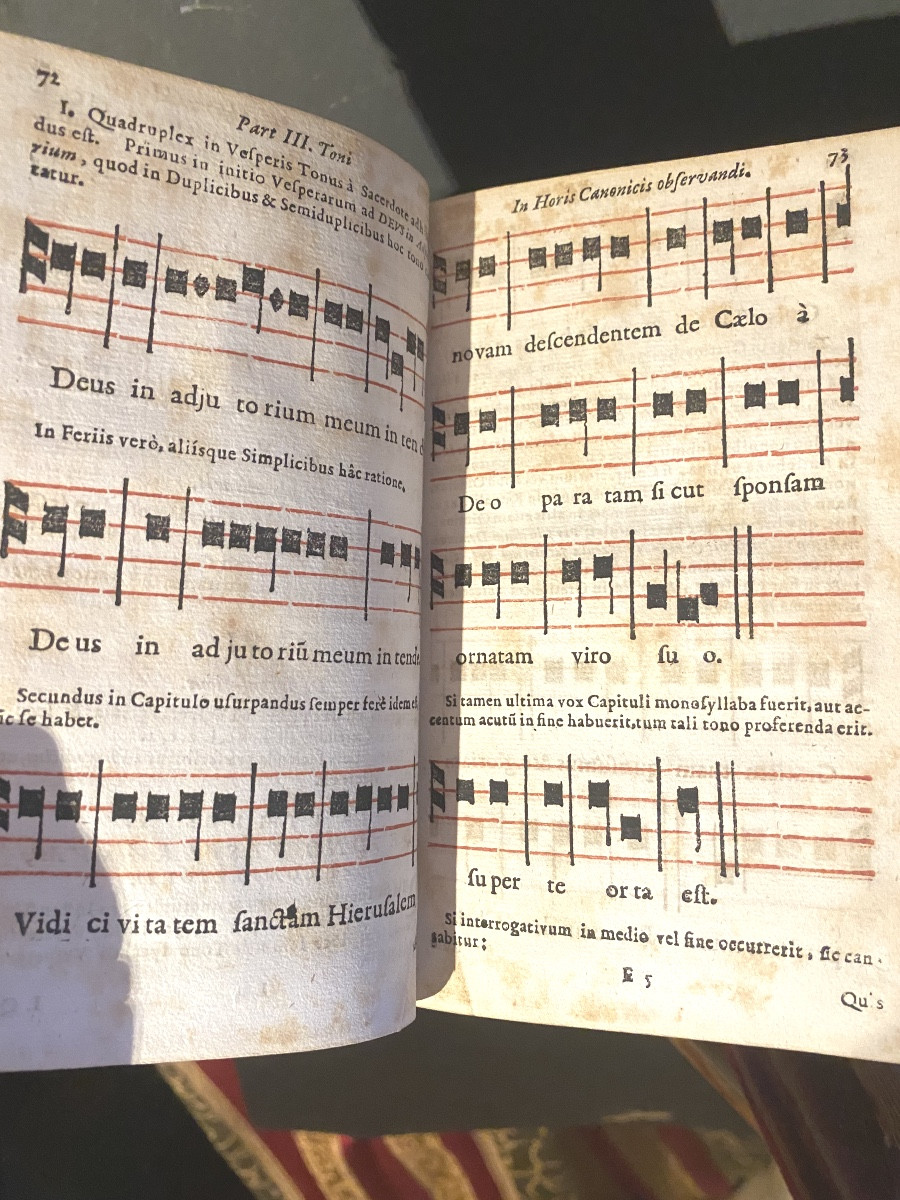 72
Part III. Toni
I. Quadruplex in Veſperis Tonus à Sacerdote
dus eſt. Primus in initio Veſperarum ad DEUS in
rium, quod in Duplicibus & Semiduplicibus hoc tono
tatur.
Deus in adju to rium meum in ten
In Feriis verò, aliíſque Simplicibus hâc ratione,
De us in ad ju to riũ meum in tende
Secundus in Capitulo uſurpandus ſemper ferè idem
ic ſe habet.
Vidi ci vi ta tem ſanctam Hieruſalem
73
In Horis Canonicis obſervandi.
novam deſcendentem de Cælo à
De o pa ra tam ſi cut ſponſam
ornatam viro ſu o.
Si tamen ultima vox Capituli monoſyllaba fuerit, aut ac-
centum acutũ in fine habuerit, tum tali tono proferenda erit.
ſu per te or ta eſt.
Si interrogativum in medio vel fine occurrerit, ſic can-
tabitur:
E 5
Qu's